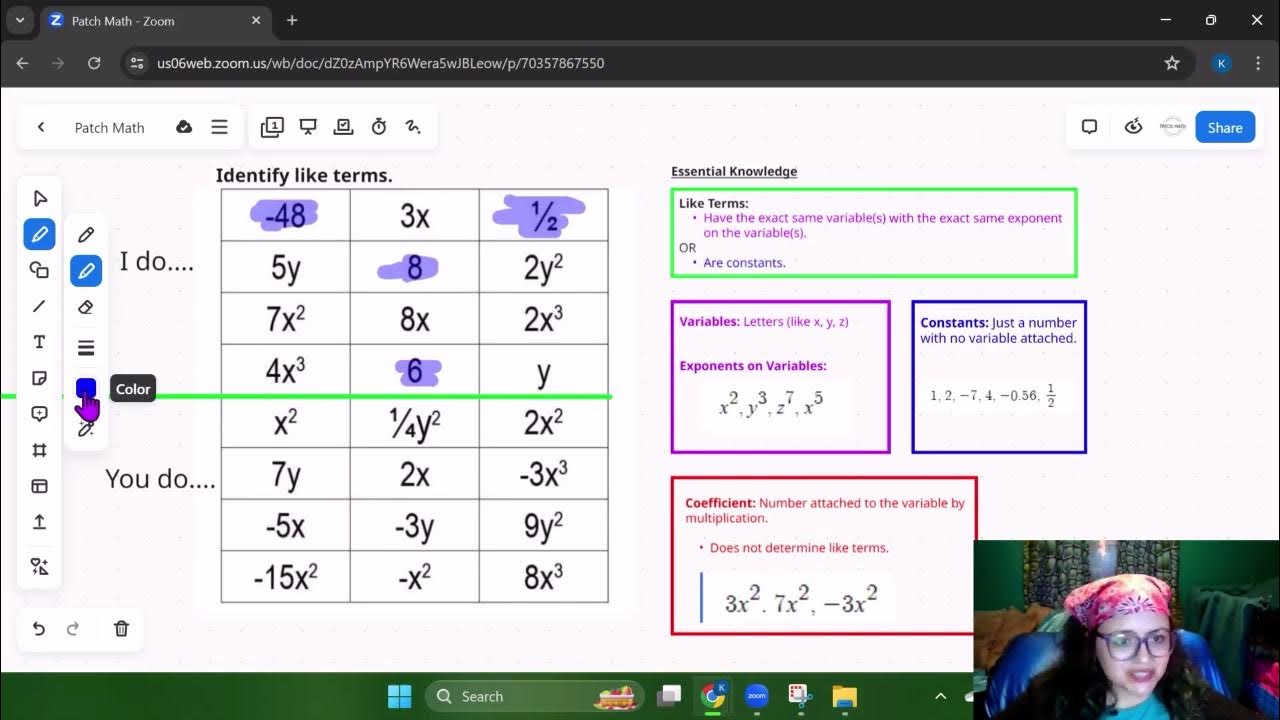 Patch Math - Zoom
us06web.zoom.us/wb/doc/dZ0zAmpYR6Wera5wJBLeow/p/70357867550
K
Patch Math
1
Share
Identify like terms.
-48 3x ½
I do....
5y 8 2y²
7x² 8x 2x³
4x³ 6 y
Color
x² ¼y² 2x²
You do....
7y 2x -3x³
-5x -3y 9y²
-15x² -x² 8x³
Essential Knowledge
Like Terms:
• Have the exact same variable(s) with the exact same exponent
on the variable(s).
OR
• Are constants.
Variables: Letters (like x, y, z)
Exponents on Variables:
x², y³, z⁷, x⁵
Constants: Just a number
with no variable attached.
1, 2, −7, 4, −0.56, 1/2
Coefficient: Number attached to the variable by
multiplication.
• Does not determine like terms.
3x². 7x², −3x²
T
Search
K
zoom